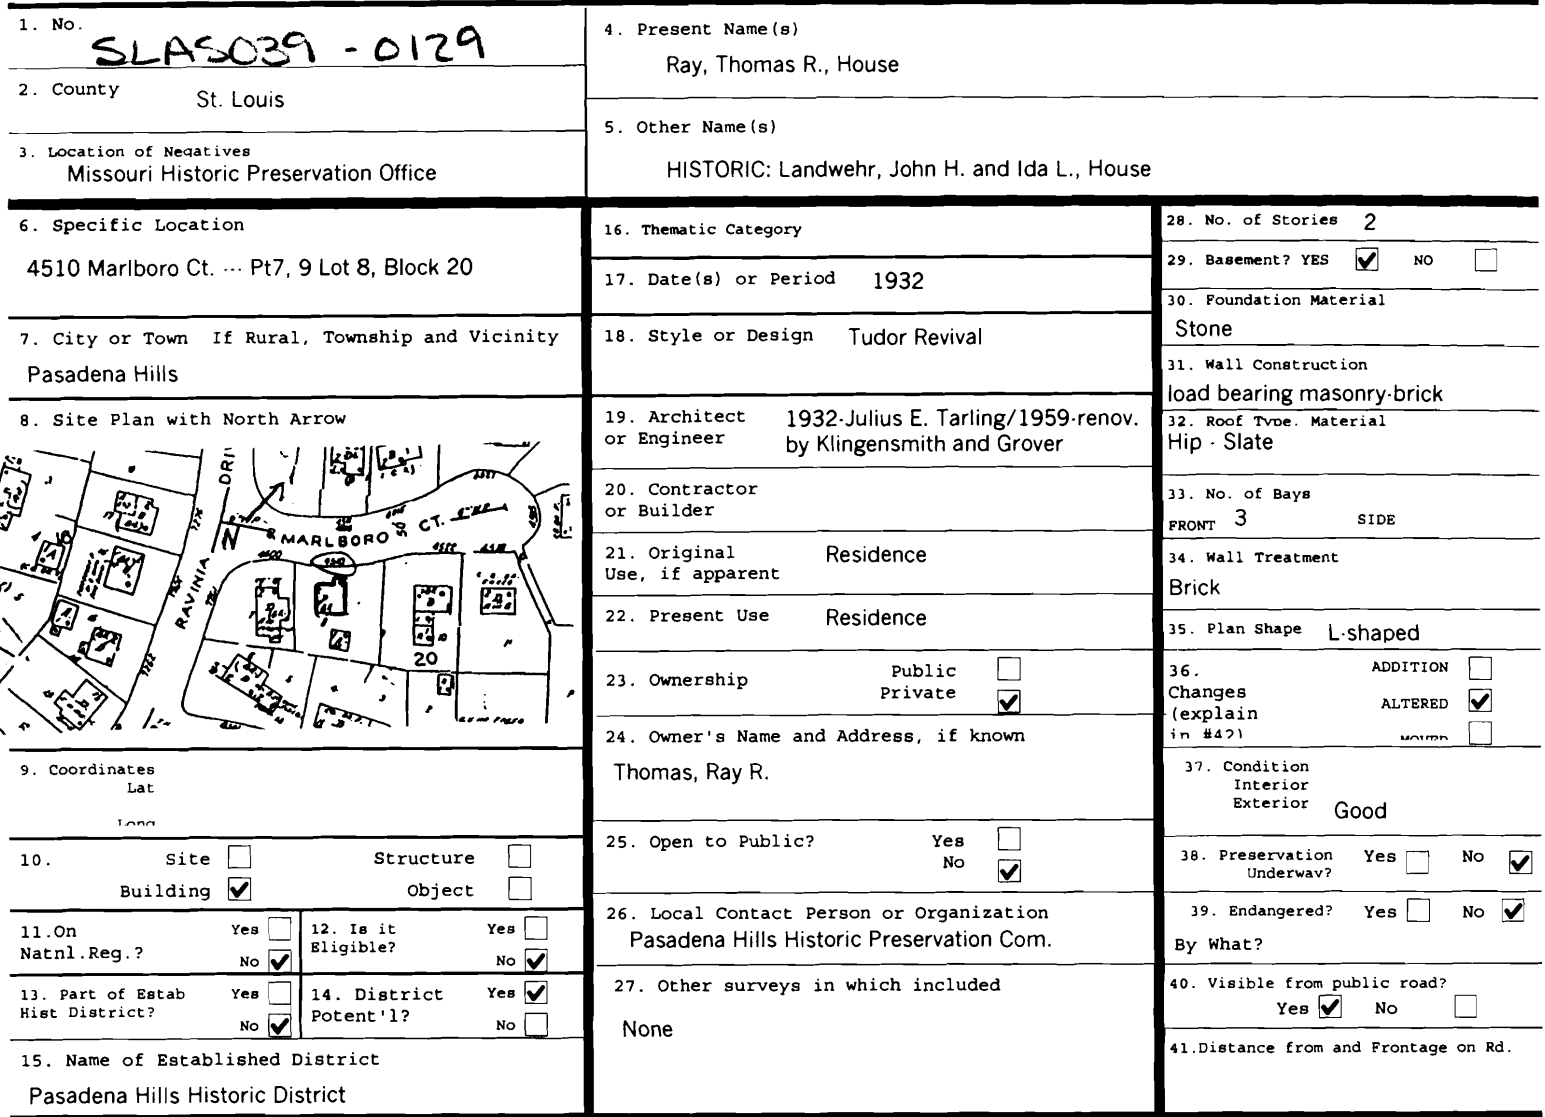 1. No.
SLAS039 - 0129
2. County St. Louis
3. Location of Negatives
Missouri Historic Preservation Office
4. Present Name(s)
Ray, Thomas R., House
5. Other Name(s)
HISTORIC: Landwehr, John H. and Ida L., House
6. Specific Location
4510 Marlboro Ct. --- Pt7, 9 Lot 8, Block 20
7. City or Town If Rural, Township and Vicinity
Pasadena Hills
8. Site Plan with North Arrow
DRI
RAVINIA
N
MARLBORO CT.
50
20
9. Coordinates
Lat
Long
10. Site Structure
Building ✔ Object
11.On Yes
Natnl.Reg.? No ✔
12. Is it Yes
Eligible? No ✔
13. Part of Estab Yes
Hist District? No ✔
14. District Yes ✔
Potent'l? No
15. Name of Established District
Pasadena Hills Historic District
16. Thematic Category
17. Date(s) or Period 1932
18. Style or Design Tudor Revival
19. Architect 1932-Julius E. Tarling/1959-renov.
or Engineer by Klingensmith and Grover
20. Contractor
or Builder
21. Original Residence
Use, if apparent
22. Present Use Residence
23. Ownership Public
Private ✔
24. Owner's Name and Address, if known
Thomas, Ray R.
25. Open to Public? Yes
No ✔
26. Local Contact Person or Organization
Pasadena Hills Historic Preservation Com.
27. Other surveys in which included
None
28. No. of Stories 2
29. Basement? YES ✔ NO
30. Foundation Material
Stone
31. Wall Construction
load bearing masonry-brick
32. Roof Type. Material
Hip - Slate
33. No. of Bays
FRONT 3 SIDE
34. Wall Treatment
Brick
35. Plan Shape L-shaped
36. ADDITION
Changes ALTERED ✔
(explain
in #42) MOVED
37. Condition
Interior
Exterior Good
38. Preservation Yes No ✔
Underway?
39. Endangered? Yes No ✔
By What?
40. Visible from public road?
Yes ✔ No
41.Distance from and Frontage on Rd.